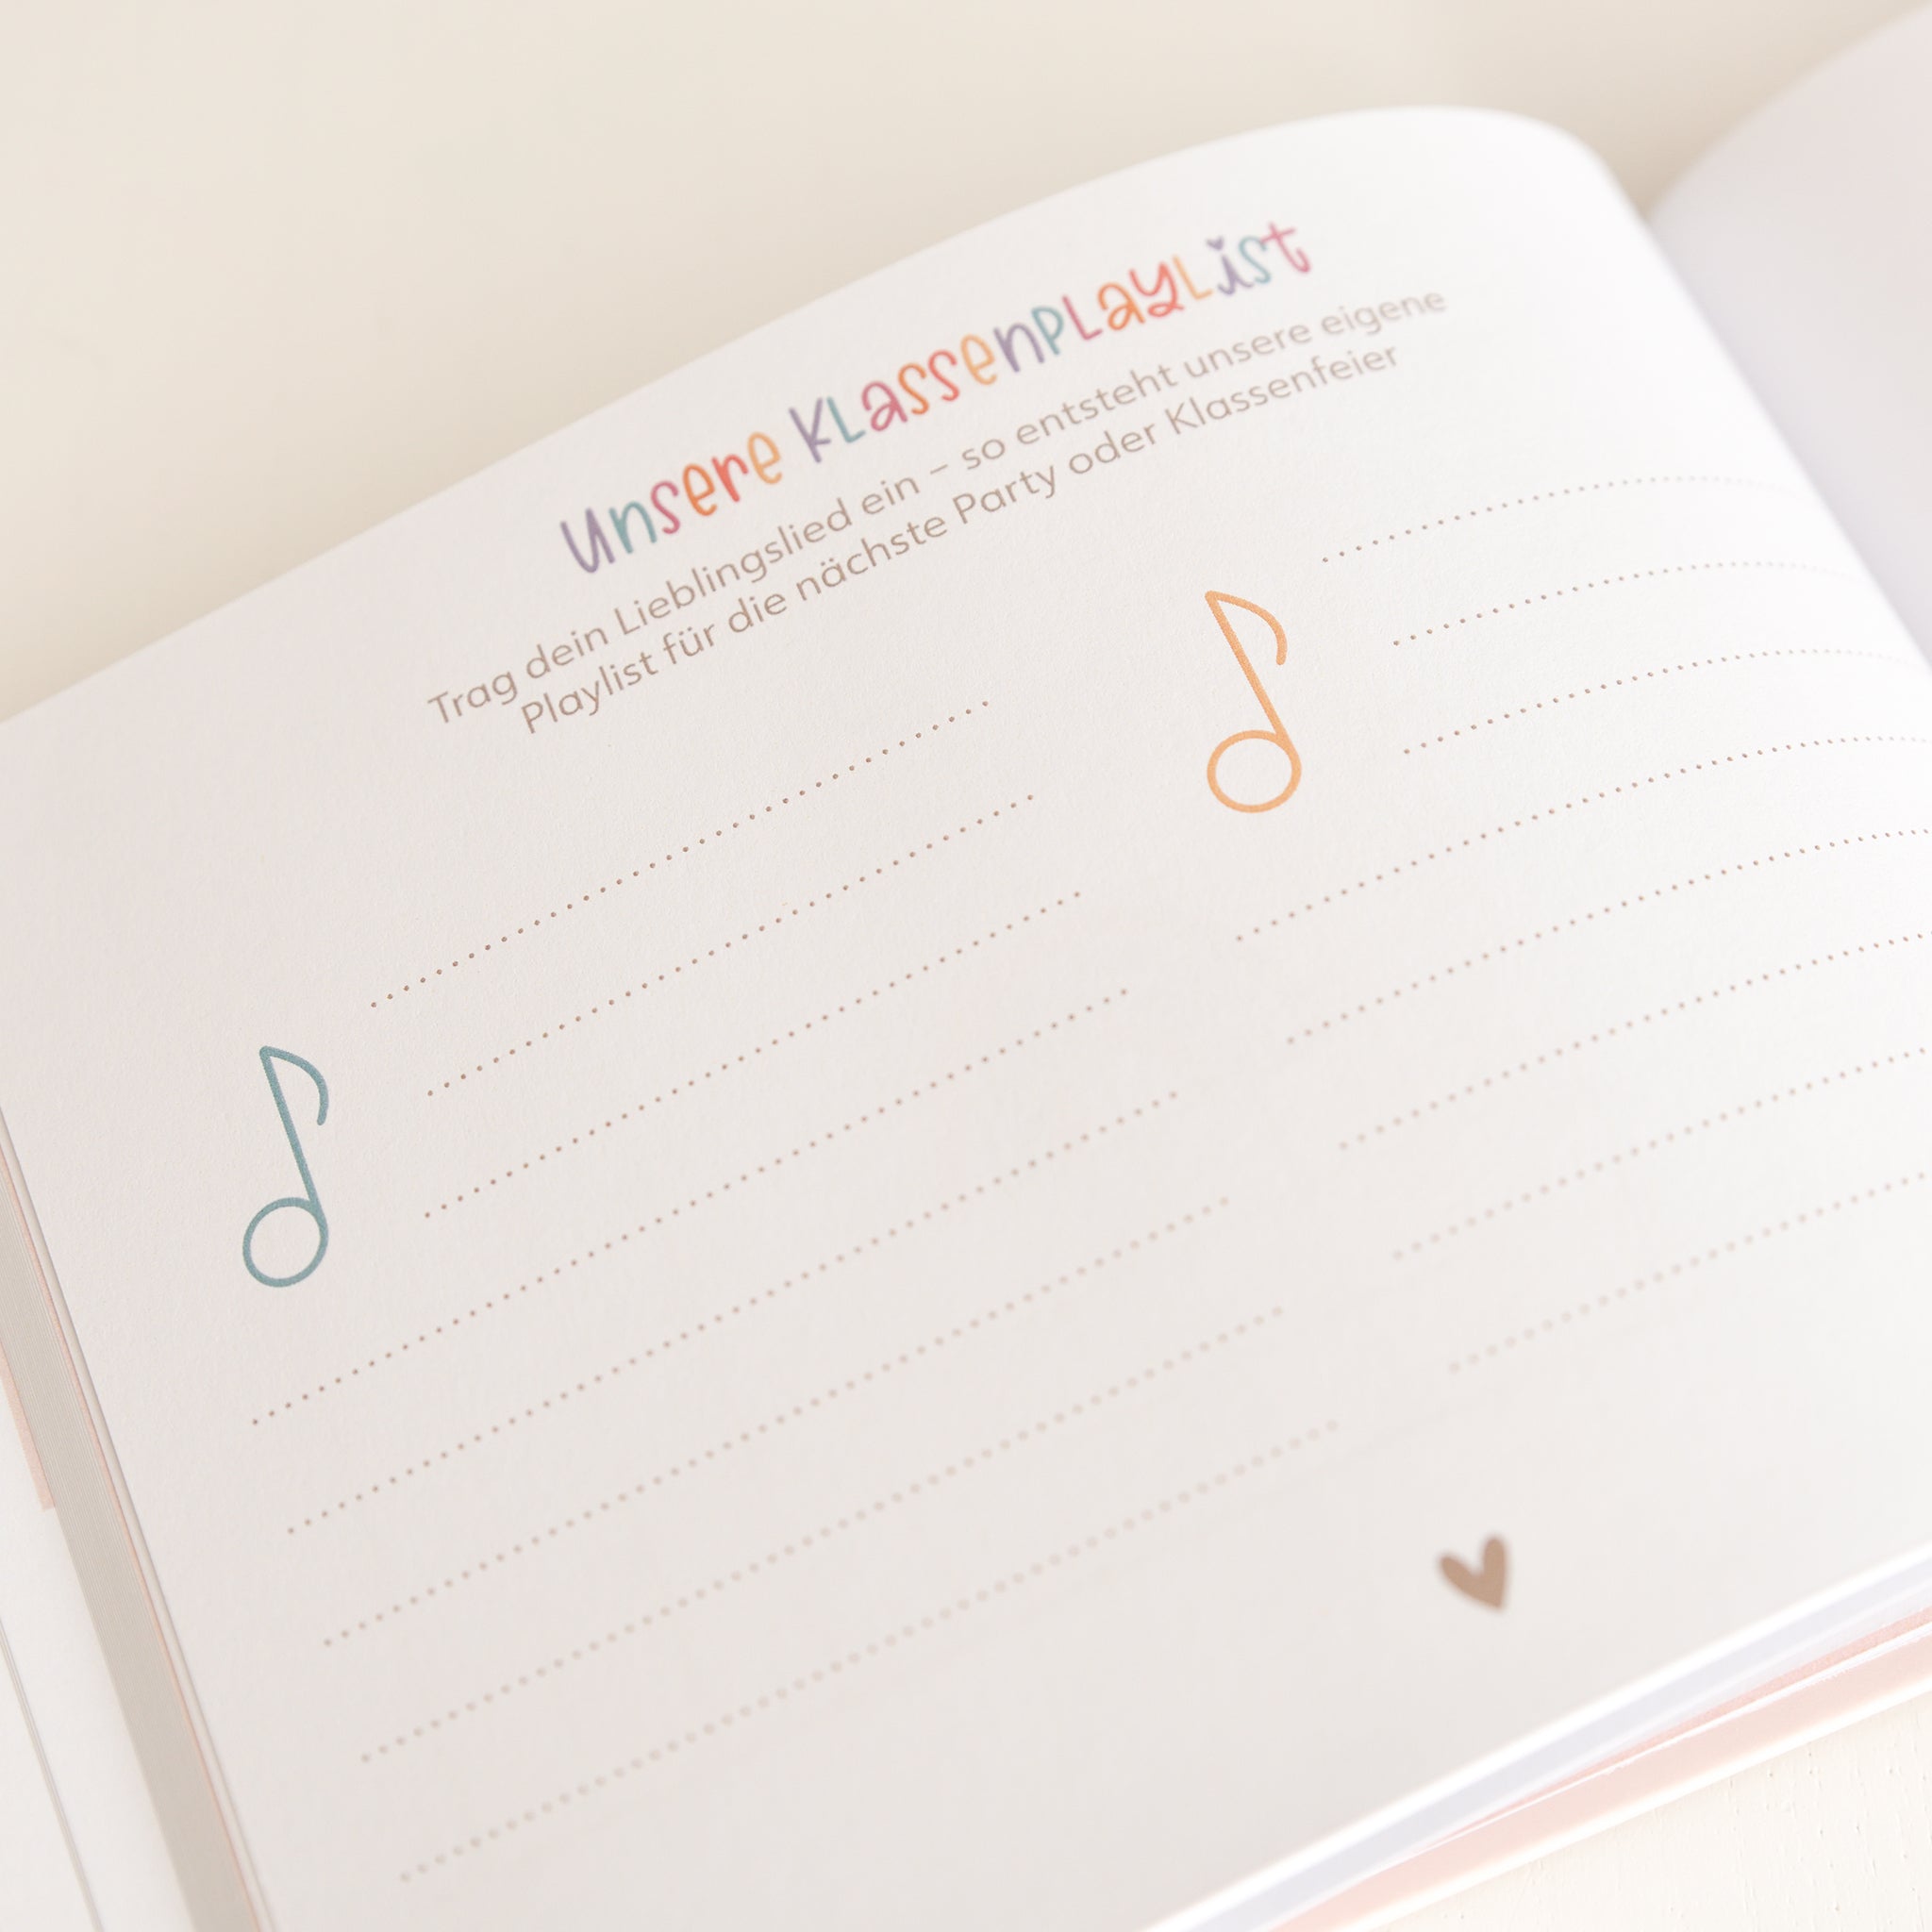 Unsere Klassenplaylist
Trag dein Lieblingslied ein – so entsteht unsere eigene
Playlist für die nächste Party oder Klassenfeier